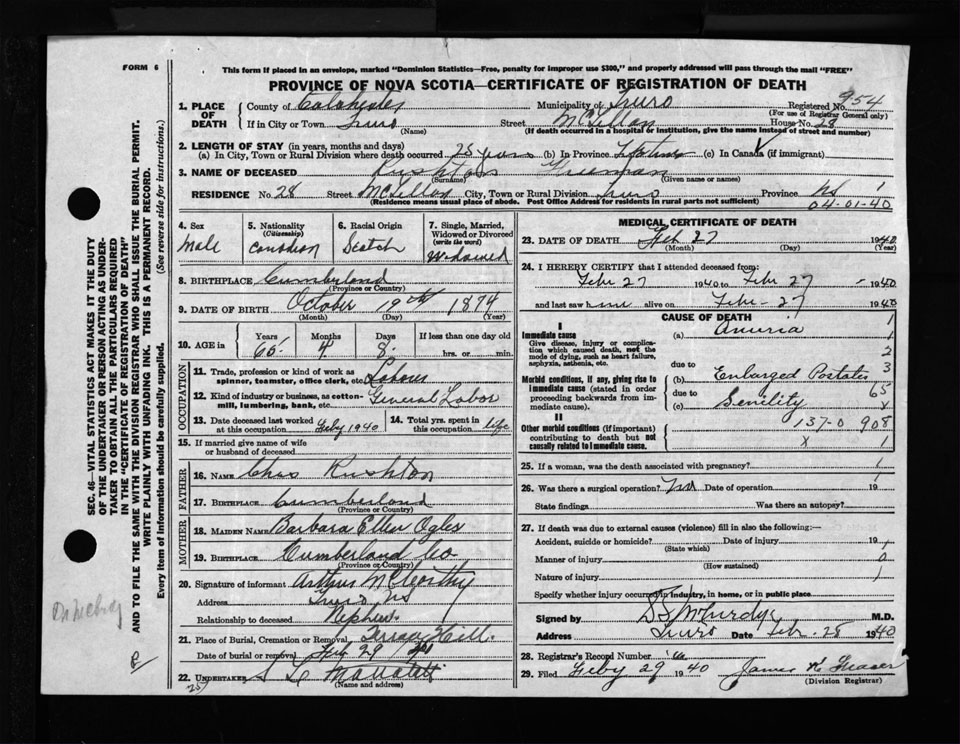 FORM 6
This form if placed in an envelope, marked "Dominion Statistics—Free, penalty for improper use $300," and properly addressed will pass through the mail "FREE"
PROVINCE OF NOVA SCOTIA—CERTIFICATE OF REGISTRATION OF DEATH
1. PLACE OF DEATH
County of Colchester Municipality of Truro Registered No. 954
(For use of Registrar General only)
If in City or Town Truro Street McLellan House No. 28
(Name) (If death occurred in a hospital or institution, give the name instead of street and number)
2. LENGTH OF STAY (in years, months and days)
(a) In City, Town or Rural Division where death occurred 25 years (b) In Province Lifetime (c) In Canada (if immigrant)
3. NAME OF DECEASED Rushton Freeman
(Surname) (Given name or names)
RESIDENCE No. 28 Street McLellan City, Town or Rural Division Truro Province NS 1
(Residence means usual place of abode. Post Office Address for residents in rural parts not sufficient) 04-01-40
4. Sex Male
5. Nationality (Citizenship) Canadian
6. Racial Origin Scotch
7. Single, Married, Widowed or Divorced (write the word) Widowed
8. BIRTHPLACE Cumberland
(Province or Country)
9. DATE OF BIRTH October 19th 1874
(Month) (Day) (Year)
10. AGE in Years 65 Months 4 Days 8 If less than one day old
hrs. or min.
OCCUPATION
11. Trade, profession or kind of work as spinner, teamster, office clerk, etc. Labour
12. Kind of industry or business, as cotton-mill, lumbering, bank, etc. General Labor
13. Date deceased last worked at this occupation Feby 1940
14. Total yrs. spent in this occupation life
15. If married give name of wife or husband of deceased
FATHER
16. NAME Chas Rushton
17. BIRTHPLACE Cumberland
(Province or Country)
MOTHER
18. MAIDEN NAME Barbara Ellen Ogles
19. BIRTHPLACE Cumberland Co
(Province or Country)
20. Signature of informant Arthur McCarthy
Address Truro NS
Relationship to deceased Nephew
21. Place of Burial, Cremation or Removal Terrace Hill.
Date of burial or removal Feb 29
22. UNDERTAKER
(Name and address)
MEDICAL CERTIFICATE OF DEATH
23. DATE OF DEATH Feb 27 1940
(Month) (Day) (Year)
24. I HEREBY CERTIFY that I attended deceased from:
Febr 27 1940 to Febr 27 - 1940
and last saw him alive on Febr - 27 1940
CAUSE OF DEATH
I
Immediate cause (a) Anuria 1
Give disease, injury or complication which caused death, not the mode of dying, such as heart failure, asphyxia, asthenia, etc. 2
due to 3
Morbid conditions, if any, giving rise to immediate cause (stated in order proceeding backwards from immediate cause). (b) Enlarged Postates
due to 65
(c) Senility x
II
137-0 908
Other morbid conditions (if important) contributing to death but not causally related to immediate cause. x 1
25. If a woman, was the death associated with pregnancy? 1
26. Was there a surgical operation? No Date of operation 19
State findings Was there an autopsy?
27. If death was due to external causes (violence) fill in also the following:—
Accident, suicide or homicide? Date of injury 19
(State which)
Manner of injury
(How sustained)
Nature of injury
Specify whether injury occurred in industry, in home, or in public place
Signed by M.D.
Address Truro Date Feb. 28 1940
28. Registrar's Record Number
29. Filed Feby 29 1940 James K Fraser
(Division Registrar)
SEC. 46—VITAL STATISTICS ACT MAKES IT THE DUTY OF THE UNDERTAKER OR PERSON ACTING AS UNDERTAKER TO OBTAIN ALL THE PARTICULARS REQUIRED IN THE "CERTIFICATE OF REGISTRATION OF DEATH"
AND TO FILE THE SAME WITH THE DIVISION REGISTRAR WHO SHALL ISSUE THE BURIAL PERMIT.
WRITE PLAINLY WITH UNFADING INK. THIS IS A PERMANENT RECORD.
Every item of information should be carefully supplied. (See reverse side for instructions.)